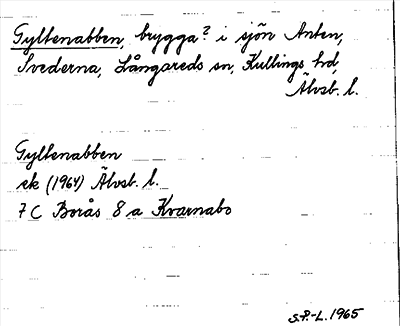 Gyltenabben, brygga? i sjön Anten,
Svederna, Långareds sn, Kullings hd,
Älvsb. l.
Gyltenabben
ek (1964) Älvsb. l.
7 C Borås 8 a Kvarnabo
S.P.-L. 1965